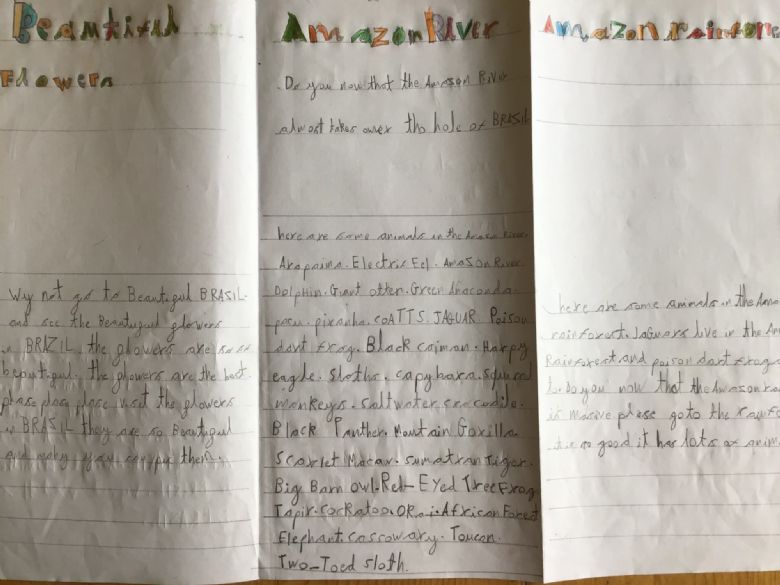 Beautiful
Flowers
Wy not go to Beautigul BRASIL.
and see the Beautugul glowers
in BRAZIL. the glowers are so so
beautigul. the glowers are the best.
please please visit the glowers
in BRASIL they are so Beautigul
and many you them.
Amazon River
Do you now that the Amason River
almost takes over the hole of BRASIL
here are some animals in the Amason River.
Arapaima. Electric Eel. Amason River
Dolphin. Giant otter. Green Anaconda.
pacu. piranha. coATTS. JAGUAR. Poison
dart frog. Black caiman. Harpy
eagle. Sloths. capybara. Squirrel
monkeys. Saltwater crocodile.
Black Panther. Mountain Gorilla.
Scarlet Macaw. sumatran Tiger.
Big Barn owl. Red-Eyed Tree Frog
Tapir. cockatoo. ORai. African Forest
Elephant. cassowary. Toucan.
Two-Toed sloth.
Amazon rainfore
here are some animals in the Ama
rainforest. Jaguars live in the Am
Rainforest and poison dart frogs
Do you now that the Amazon ra
is masive plese go to the rainfo
so good it has lots of anim